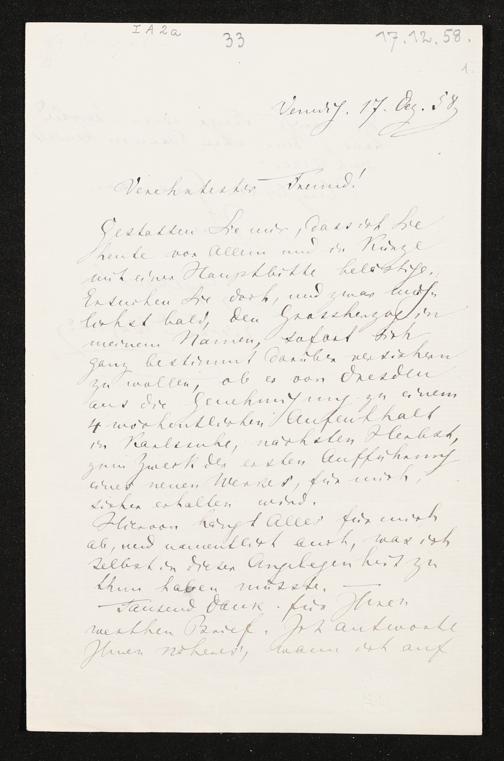 I A 2a 33 17.12.58.
1.
Venedig. 17. Dez. 58
Verehrtester Freund!
Gestatten Sie mir, dass ich Sie
heute vor Allem und in Kürze
mit einer Hauptbitte belästige.
Ersuchen Sie doch, und zwar mög-
lichst bald, den Grossherzog in
meinem Namen, sofort sich
ganz bestimmt darüber versichern
zu wollen, ob er von Dresden
aus die Genehmigung zu einem
4 wöchentlichen Aufenthalt
in Karlsruhe, nächsten Herbst,
zum Zweck der ersten Aufführung
eines neuen Werkes, für mich,
sicher erhalten wird.
Hiervon hängt Alles für mich
ab, und namentlich auch, was ich
selbst in dieser Angelegenheit zu
thun haben müsste. —
Tausend Dank für Ihren
werthen Brief. Ich antworte
Ihnen näheres, wann ich auf